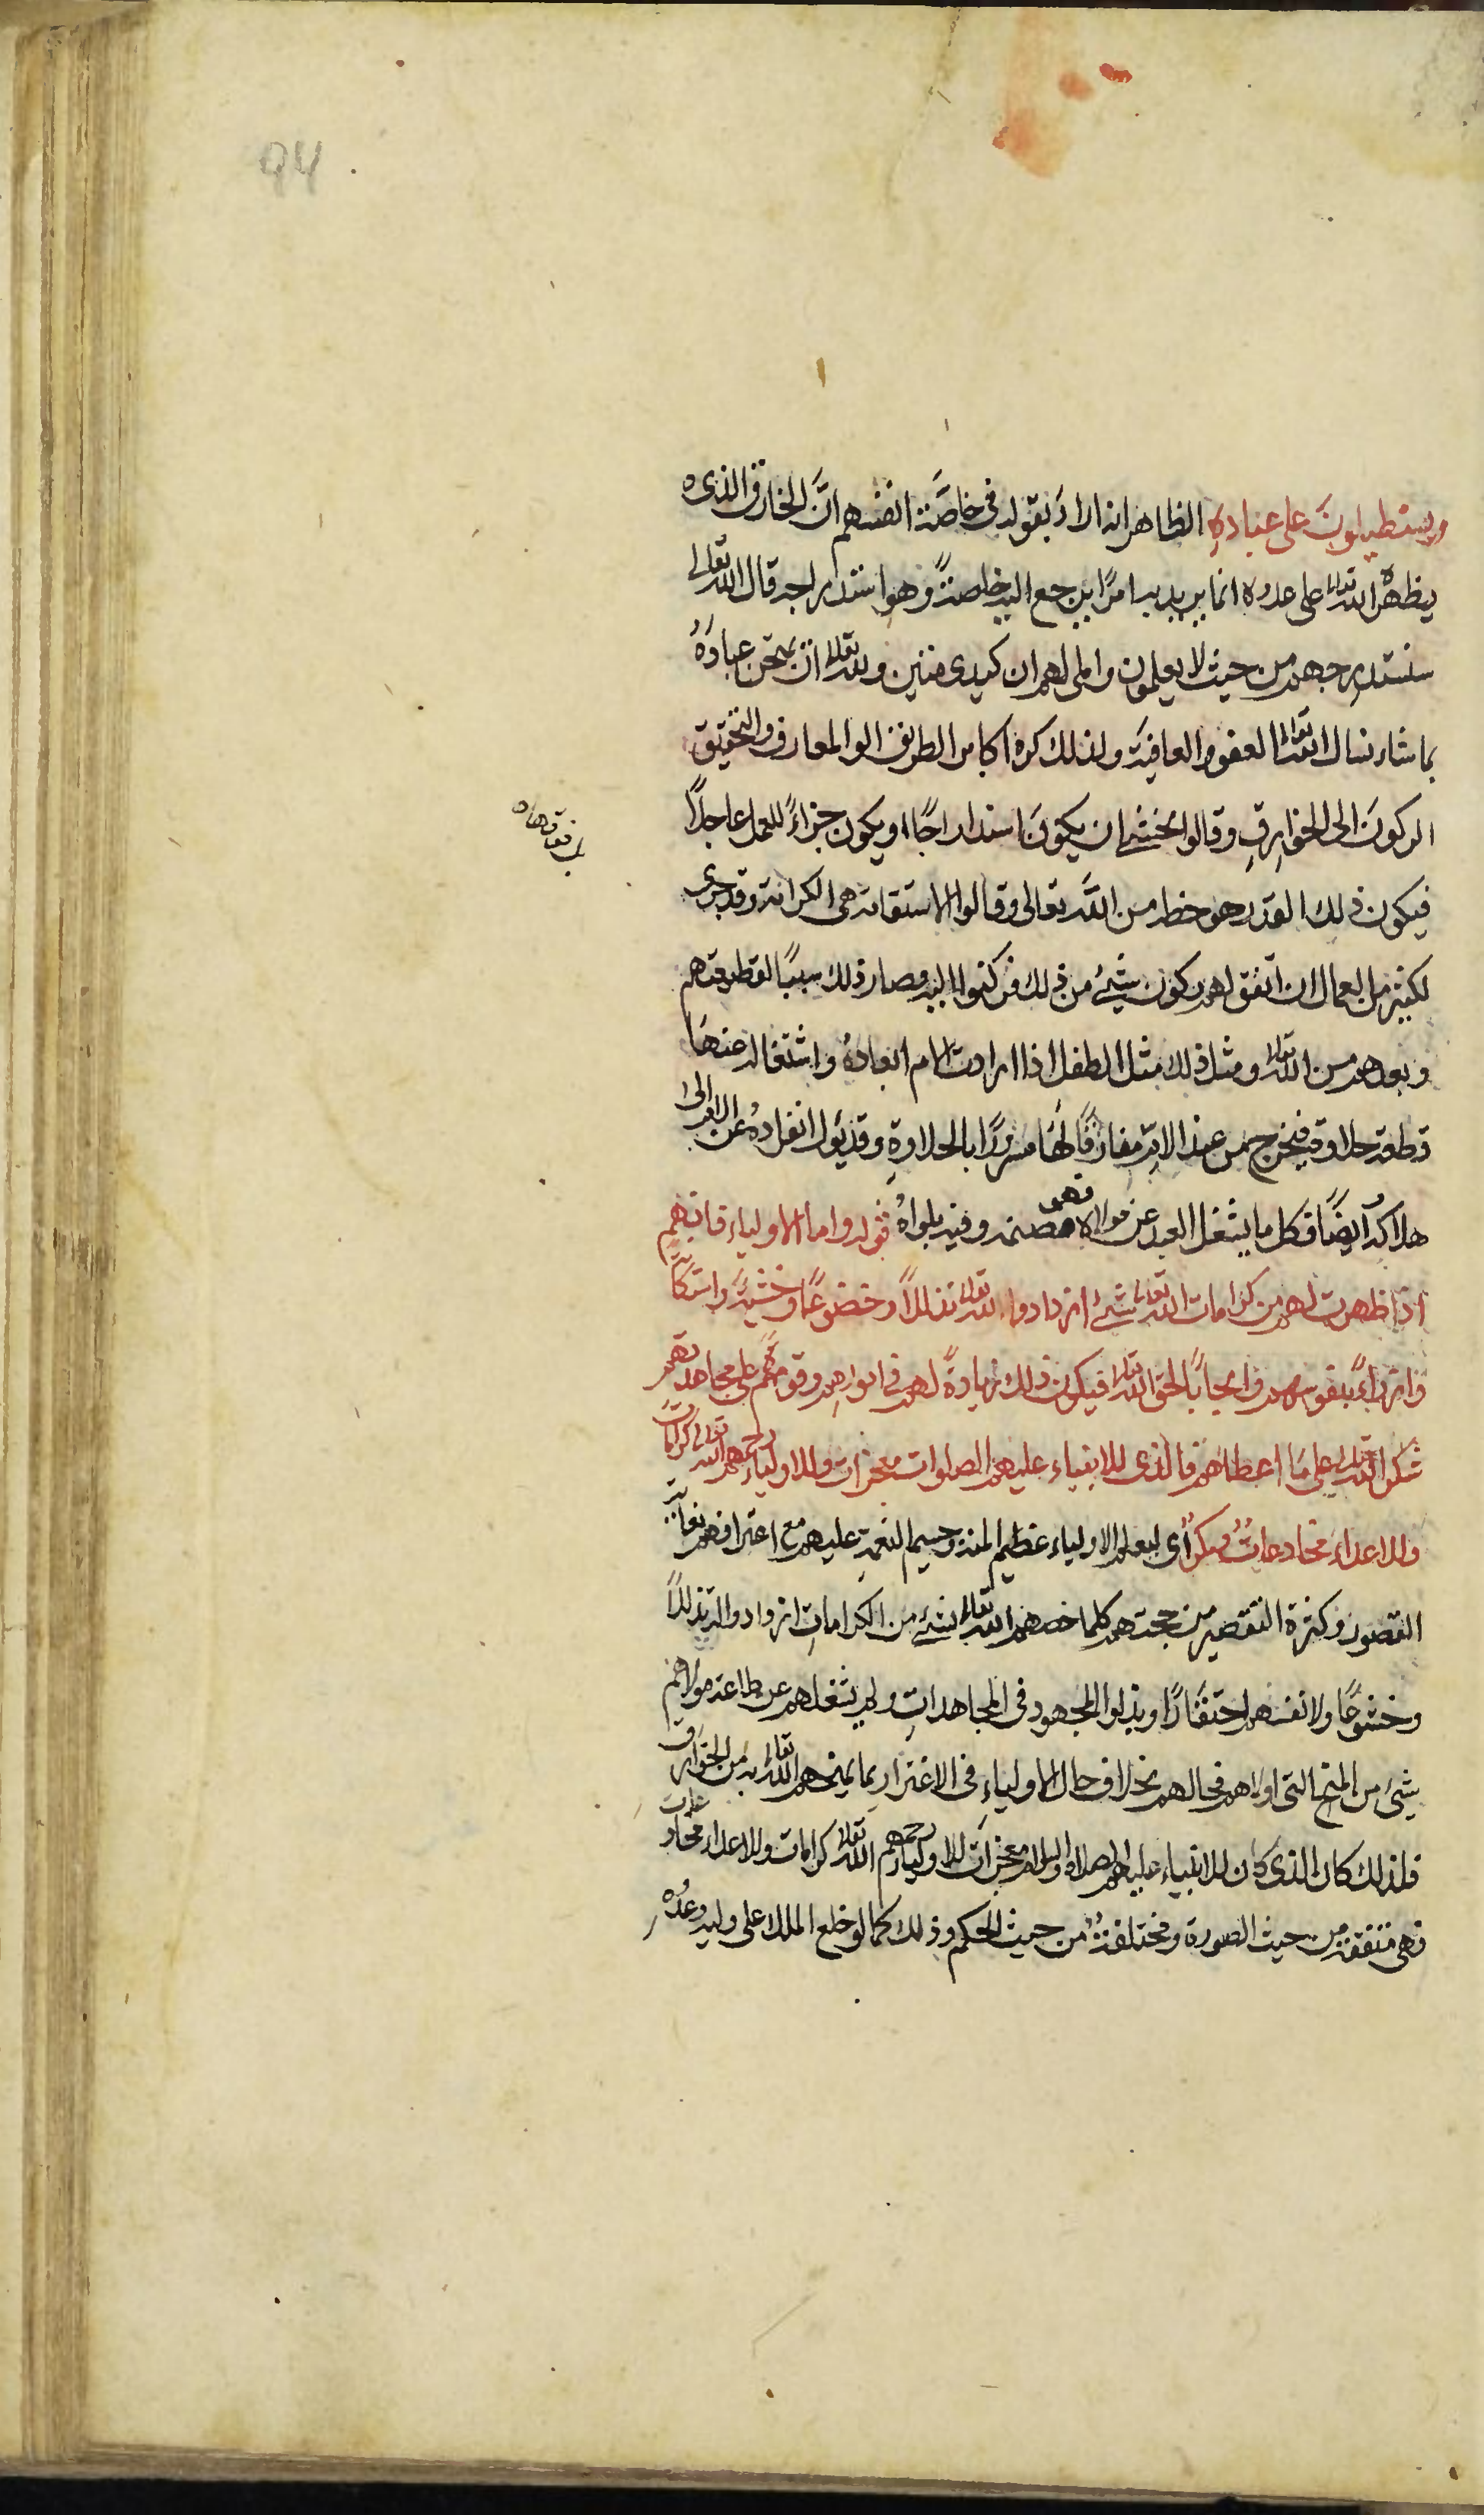 94
ويستطيلون على عباده الظاهر انه اراد بقوله في خاصّة انفسهم انّ الخارق الذي
يظهره الله تعالى على عدوه انما يريد به امرًا يرجع اليه خاصةً وهو استدراجه قال الله تعالى
سنستدرجهم من حيث لا يعلمون واملى لهم ان كيدى متين ولله تعالى ان يمتحن عبادهُ
بما شاء نسال الله تعالى العفو والعافية ولذلك كره اكابر الطريق اولو المعارف والتحقيق
الركونَ الى الخوارق وقالوا نخشى ان يكونَ استدراجًا او يكون جزاءً للعمل عاجلًا
فيكون ذلك القدر هو حظه من الله تعالى وقالوا الاستقامة هى الكرامة وقد جرى
لكثير من العمال ان اتفق لهم كون شيئ من ذلك فركنوا اليه وصار ذلك سببًا لقطيعتهم
وبعدهم من الله تعالى ومثل ذلك مثل الطفل اذا ارادت الام ابعادهُ واشتغاله عنها
قطعة حلاوة فيخرج من عند الام مفارقًا لها مسرورًا بالحلاوة وقد يئول انفرادهُ عن الام الى
هلاكه ايضًا فكل ما يشغل العبد عن مولاه فهو صنمه وفيه بلواهُ قوله واما الاولياء فانهم
اذا ظهرت لهم من كرامات الله تعالى شيئ ازدادوا لله تعالى تذللًا وخضوعًا وخشية واستكانة
وازراءً بنفوسهم وايجابًا لحق الله تعالى فيكون ذلك زيادةً لهم في امورهم وقوة لهم على مجاهدتهم
شكرا لله تعالى على ما اعطاهم فالذى للانبياء عليهم الصلوات معجزات وللاولياء رحمهم الله تعالى كرامات
وللاعداء مخادعاتٌ ومكرٌ اى لعلم الاولياء عظيم المنة وجسيم النعمة عليهم مع اعترافهم بغاية
القصور وكثرة التقصير من جهتهم كلما خصهم الله تعالى بشيئ من الكرامات ازدادوا له تذللًا
وخشوعًا ولانفسهم احتقارًا وبذلوا المجهود في المجاهدات ولم يشغلهم عن طاعة مولاهم
شيئ من المنح التى اولاهم فحالهم بخلاف حال الاولياء في الاغترار بما يمنحهم الله تعالى به من الخوارق
فلذلك كان الذى كان للانبياء عليهم الصلاة والسلام معجزات للاولياء رحمهم الله تعالى كرامات وللاعداء مخادعات
فهى متفقة من حيث الصورة ومختلفةٌ من حيث الحكم وذلك كما لو خلع الملك على وليه وعدُه